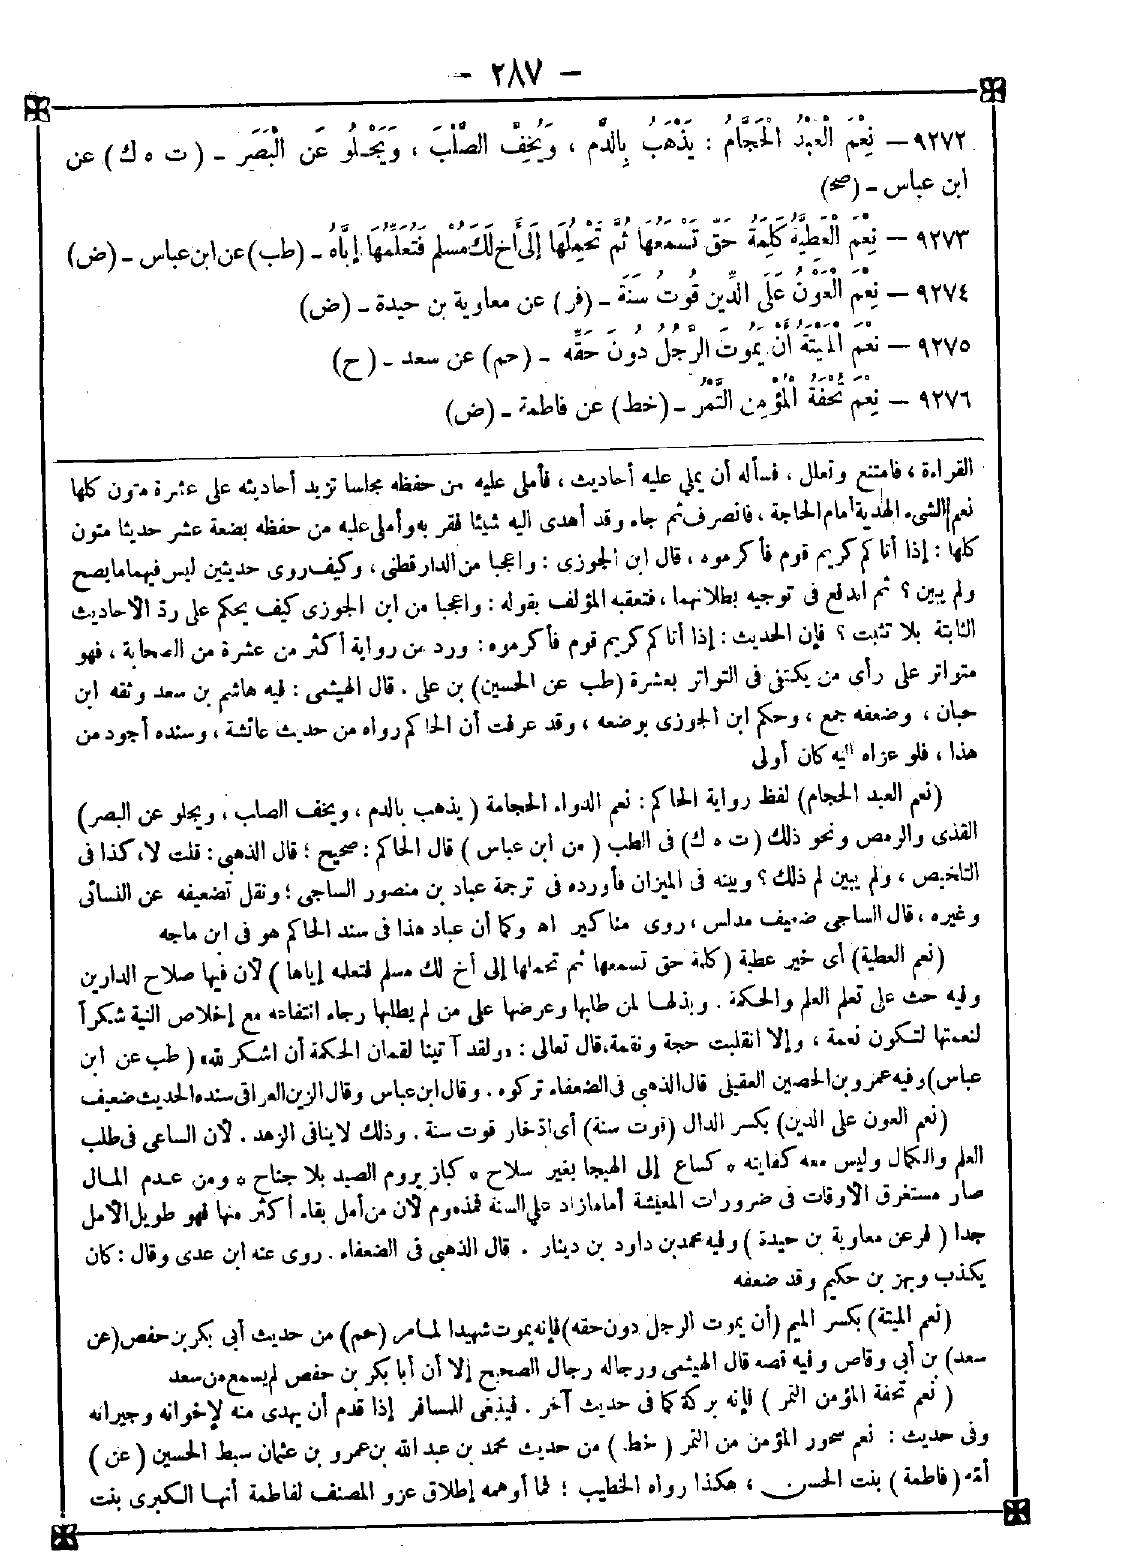 - ٢٨٧ -
٩٢٧٢ – نِعْمَ الْعَبْدُ الْحَجَّامُ : يَذْهَبُ بِالدَّمِ ، وَيُخِفُّ الصُّلْبَ ، وَيَجْلُو عَنِ الْبَصَرِ - (ت ه ك) عن
ابن عباس - (صح)
٩٢٧٣ – نِعْمَ الْعَطِيَّةُ كَلِمَةُ حَقٍّ تَسْمَعُهَا ثُمَّ تَحْمِلُهَا إِلَى أَخٍ لَكَ مُسْلِمٍ فَتُعَلِّمُهَا إِيَّاهُ - (طب) عن ابن عباس - (ض)
٩٢٧٤ – نِعْمَ الْعَوْنُ عَلَى الدِّينِ قُوتُ سَنَةٍ - (فر) عن معاوية بن حيدة - (ض)
٩٢٧٥ – نِعْمَ الْمِيتَةُ أَنْ يَمُوتَ الرَّجُلُ دُونَ حَقِّهِ - (حم) عن سعد - (ح)
٩٢٧٦ – نِعْمَ تُحْفَةُ الْمُؤْمِنِ التَّمْرُ - (خط) عن فاطمة - (ض)
القراءة ، فامتنع وتعلل ، فسأله أن يملي عليه أحاديث ، فأملى عليه من حفظه مجلسا تزيد أحاديثه على عشرة متون كلها
نعم الشيء الهدية أمام الحاجة ، فانصرف ثم جاء وقد أهدى اليه شيئا فقربه وأملى عليه من حفظه بضعة عشر حديثا متون
كلها : إذا أتاكم كريم قوم فأكرموه ، قال ابن الجوزى : واعجبا من الدارقطنى ، وكيف روى حديثين ليس فيهما ما يصح
ولم يبين ؟ ثم اندفع فى توجيه بطلانهما ، فتعقبه المؤلف بقوله : واعجبا من ابن الجوزى كيف يحكم على ردّ الأحاديث
الثابتة بلا تثبت ؟ فإن الحديث : إذا أتاكم كريم قوم فأكرموه : ورد من رواية أكثر من عشرة من الصحابة ، فهو
متواتر على رأى من يكتفى فى التواتر بعشرة (طب عن الحسين) بن على . قال الهيثمى : فيه هاشم بن سعد وثقه ابن
حبان ، وضعفه جمع ، وحكم ابن الجوزى بوضعه ، وقد عرفت أن الحاكم رواه من حديث عائشة ، وسنده أجود من
هذا ، فلو عزاه اليه كان أولى
(نعم العبد الحجام) لفظ رواية الحاكم : نعم الدواء الحجامة ( يذهب بالدم ، ويخف الصلب ، ويجلو عن البصر )
القذى والرمص ونحو ذلك (ت ه ك) فى الطب ( من ابن عباس ) قال الحاكم : صحيح ؛ قال الذهبى : قلت لا ، كذا فى
التلخيص ، ولم يبين لم ذلك ؟ وبينه فى الميزان فأورده فى ترجمة عباد بن منصور الساجى ؛ ونقل تضعيفه عن النسائى
وغيره ، قال الساجى ضعيف مدلس ، روى مناكير اه وكما أن عباد هذا فى سند الحاكم هو فى ابن ماجه
(نعم العطية) أى خير عطية (كلمة حق تسمعها ثم تحملها إلى أخ لك مسلم فتعلمه إياها ) لأن فيها صلاح الدارين
وفيه حث على تعلم العلم والحكمة . وبذلها لمن طلبها وعرضها على من لم يطلبها رجاء انتفاعه مع إخلاص النية شكراً
لنعمتها لتكون نعمة ، وإلا انقلبت حجة ونقمة ، قال تعالى : «ولقد آتينا لقمان الحكمة أن اشكر لله» ( طب عن ابن
عباس) وفيه عمرو بن الحصين العقيلى قال الذهبى فى الضعفاء تركوه . وقال ابن عباس وقال الزين العراقى سنده الحديث ضعيف
(نعم العون على الدين) بكسر الدال (قوت سنة) أى ادخار قوت سنة . وذلك لا ينافى الزهد . لأن الساعى فى طلب
العلم والكمال وليس معه كفايته * كساع إلى الهيجا بغير سلاح * كباز يروم الصيد بلا جناح * ومن عدم المال
صار مستغرق الأوقات فى ضرورات المعيشة أما مازاد على السنة فمذموم لأن من أمل بقاء أكثر منها فهو طويل الأمل
جدا ( فر عن معاوية بن حيدة ) وفيه محمد بن داود بن دينار . قال الذهبى فى الضعفاء . روى عنه ابن عدى وقال : كان
يكذب وبهز بن حكيم وقد ضعفه
(نعم الميتة) بكسر الميم (أن يموت الرجل دون حقه) فإنه يموت شهيدا لما مر (حم) من حديث أبى بكر بن حفص (عن
سعد) بن أبى وقاص وفيه قصة قال الهيثمى ورجاله رجال الصحيح إلا أن أبا بكر بن حفص لم يسمع من سعد
( نعم تحفة المؤمن التمر ) فإنه بركة كما فى حديث آخر . فينبغى للمسافر إذا قدم أن يهدى منه لإخوانه وجيرانه
وفى حديث : نعم سحور المؤمن من التمر ( خط ) من حديث محمد بن عبد الله بن عمرو بن عثمان سبط الحسين ( عن )
أمّه (فاطمة ) بنت الحسن ، هكذا رواه الخطيب ؛ فما أوهمه إطلاق عزو المصنف لفاطمة أنها الكبرى بنت